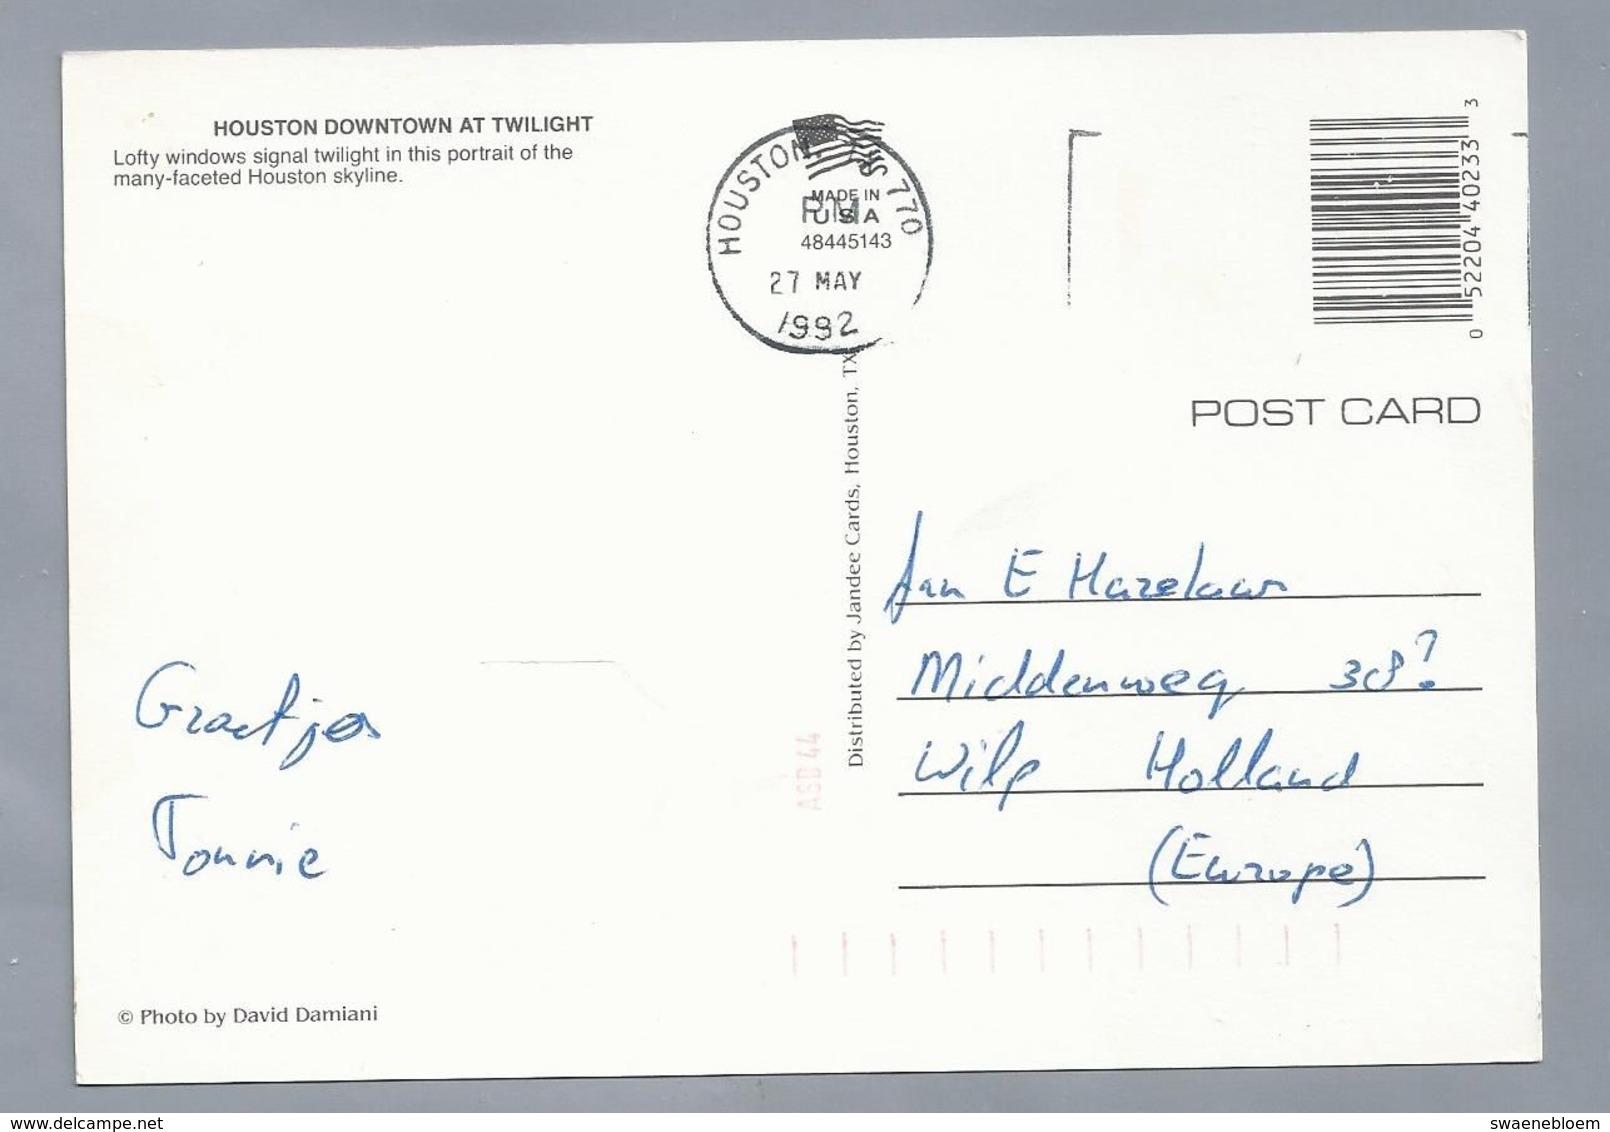 HOUSTON DOWNTOWN AT TWILIGHT
Lofty windows signal twilight in this portrait of the
many-faceted Houston skyline.
HOUSTON, 770
PM
27 MAY
1992
MADE IN
USA
48445143
0 52204 40233 3
POST CARD
Distributed by Jandee Cards, Houston, TX
Jan E Hazelaar
Middenweg 38?
Wilp Holland
(Europe)
Graetjes
Tonnie
ASD 44
© Photo by David Damiani
delcampe.net
swaenebloem